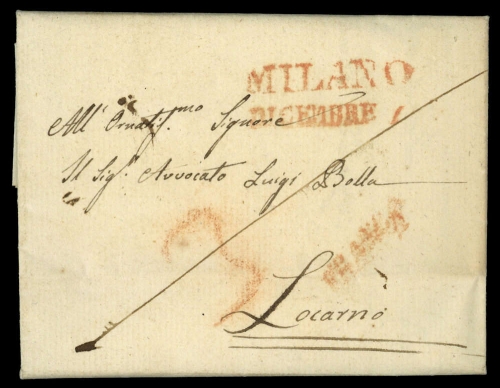 MILANO
DICEMBRE
All' Ornatis.mo Signore
Il Sig.r Avvocato Luigi Bolla
FRANCA
Locarno